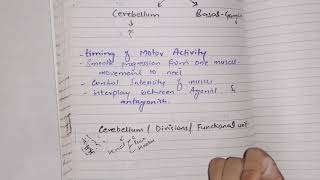 Cerebellum Basal-Ganglia
?
- timing of Motor Activity
- Smooth progression from one muscle
movement to next
- Control Intensity of muscle
- interplay between Agonist &
antagonist.
Cerebellum / Divisions / Functional unit